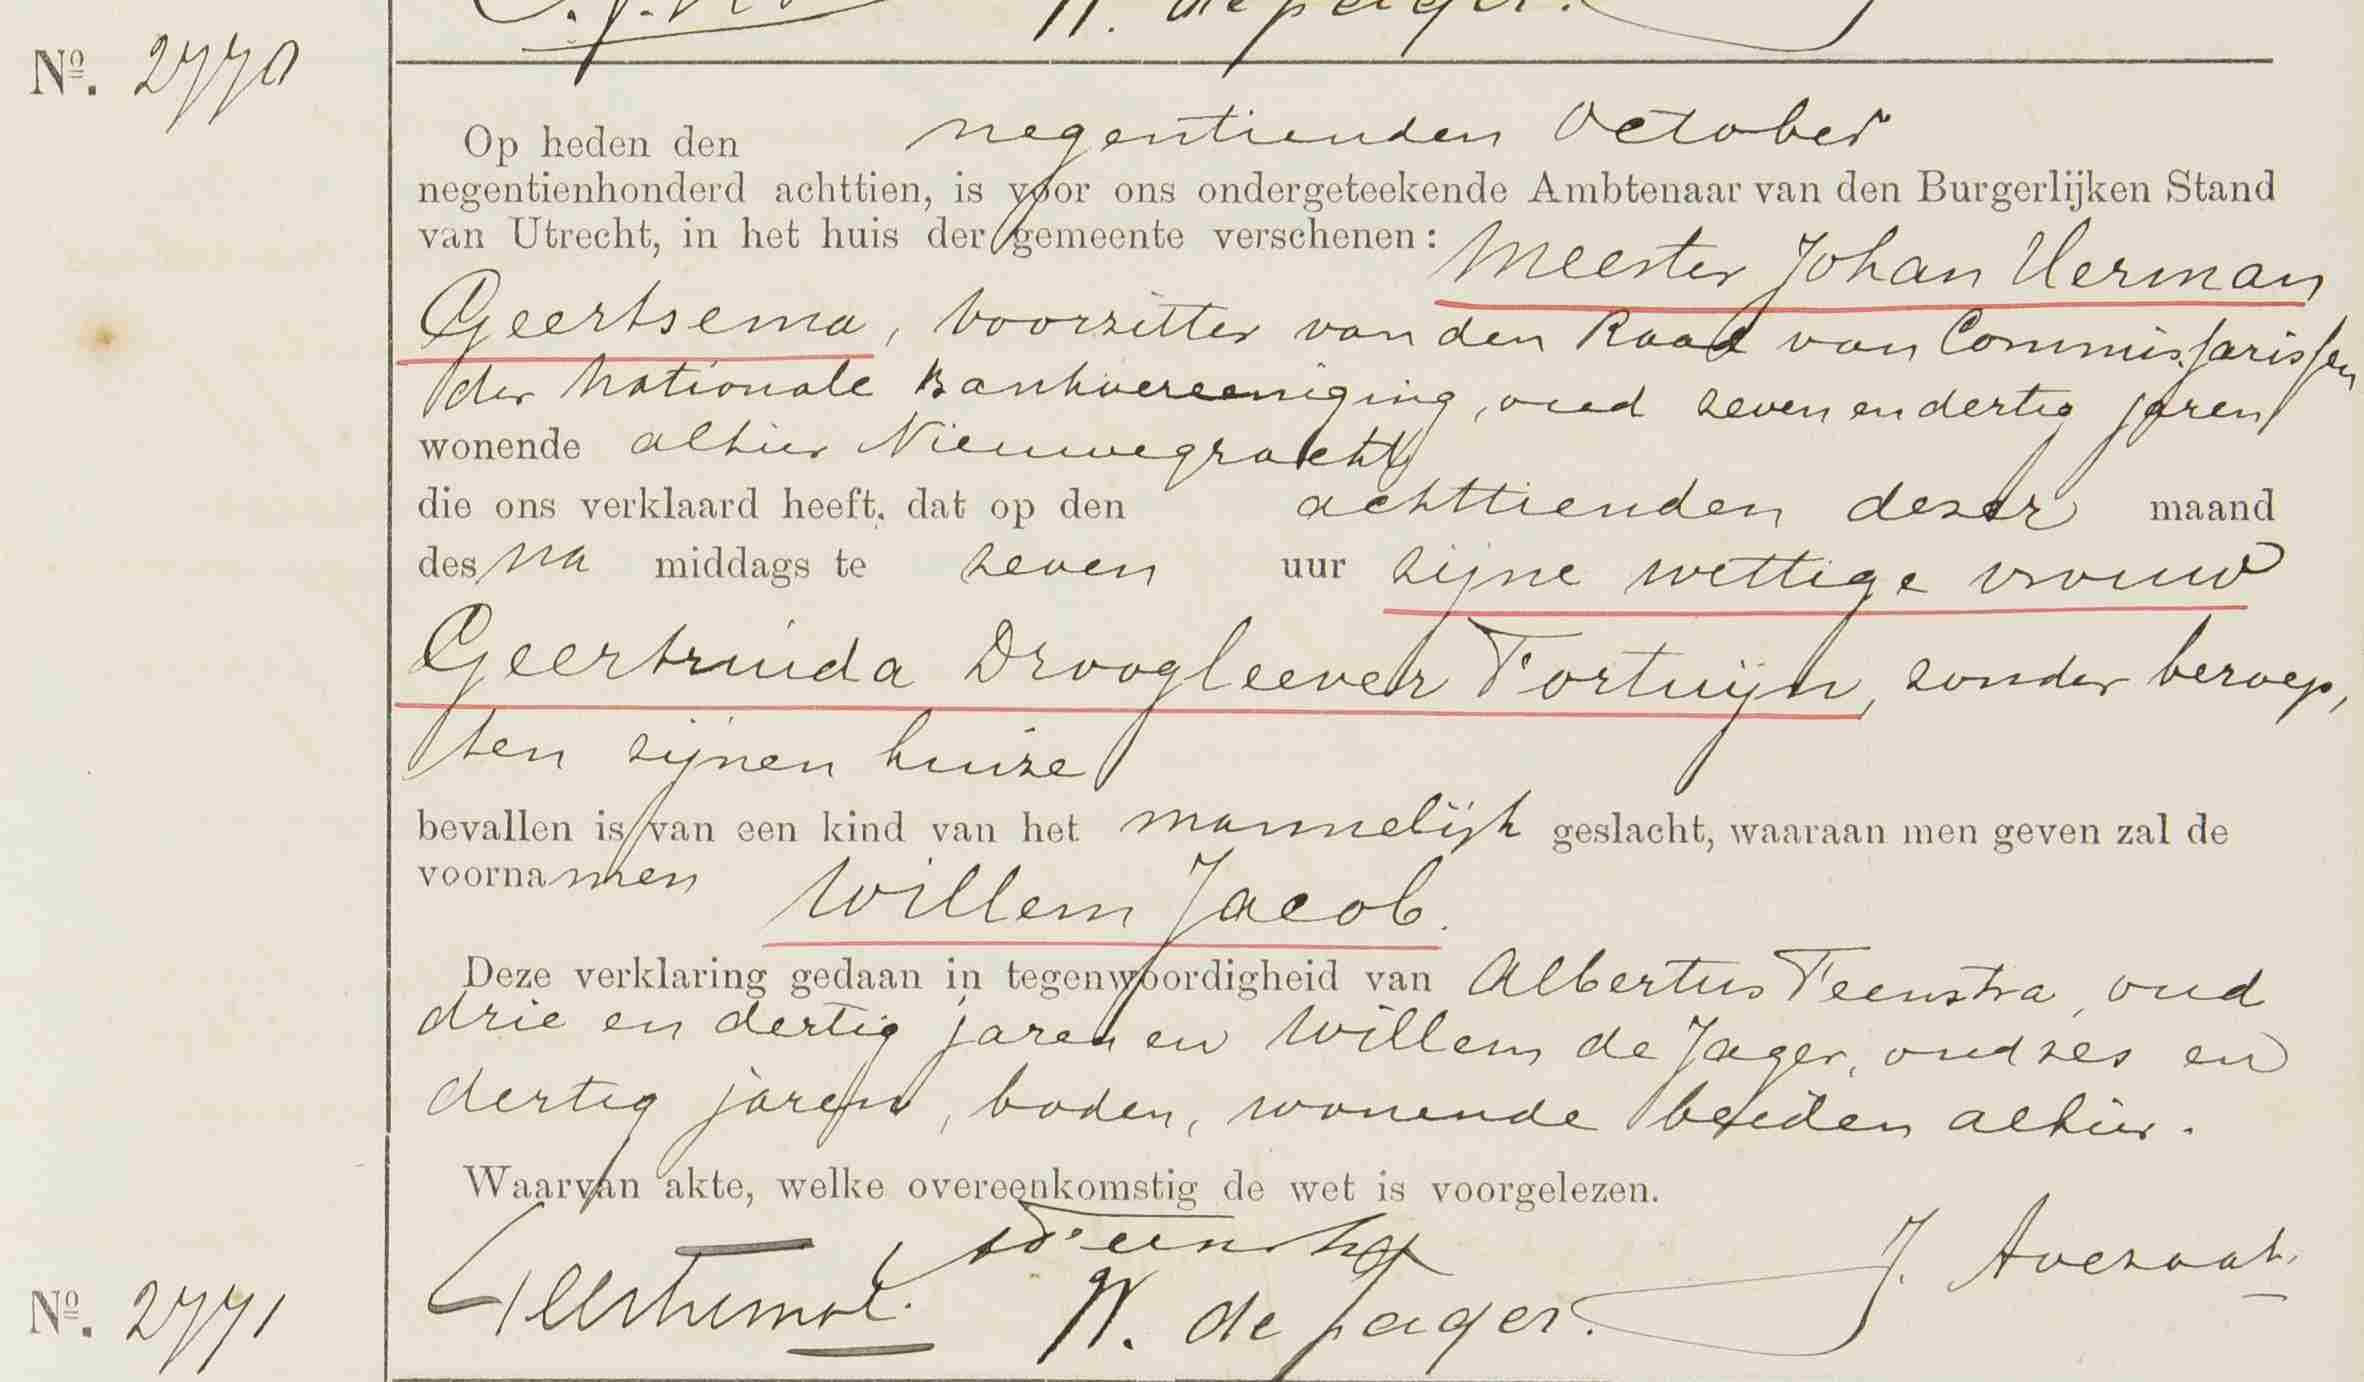 W. de Jager.
Nº. 2770
Op heden den negentienden October
negentienhonderd achttien, is voor ons ondergeteekende Ambtenaar van den Burgerlijken Stand
van Utrecht, in het huis der gemeente verschenen: Meester Johan Herman
Geertsema, voorzitter van den Raad van Commissarissen
der Nationale Bankvereeniging, oud zeven en dertig jaren
wonende alhier Nieuwegracht
die ons verklaard heeft, dat op den achttienden dezer maand
des na middags te zeven uur zijne wettige vrouw
Geertruida Droogleever Fortuijn, zonder beroep,
ten zijnen huize
bevallen is van een kind van het mannelijk geslacht, waaraan men geven zal de
voornamen Willem Jacob.
Deze verklaring gedaan in tegenwoordigheid van Albertus Teenstra, oud
drie en dertig jaren en Willem de Jager, oud zes en
dertig jaren, boden, wonende beiden alhier.
Waarvan akte, welke overeenkomstig de wet is voorgelezen.
Geertsema. Teenstra W. de Jager. J. Avezaat.
Nº. 2771